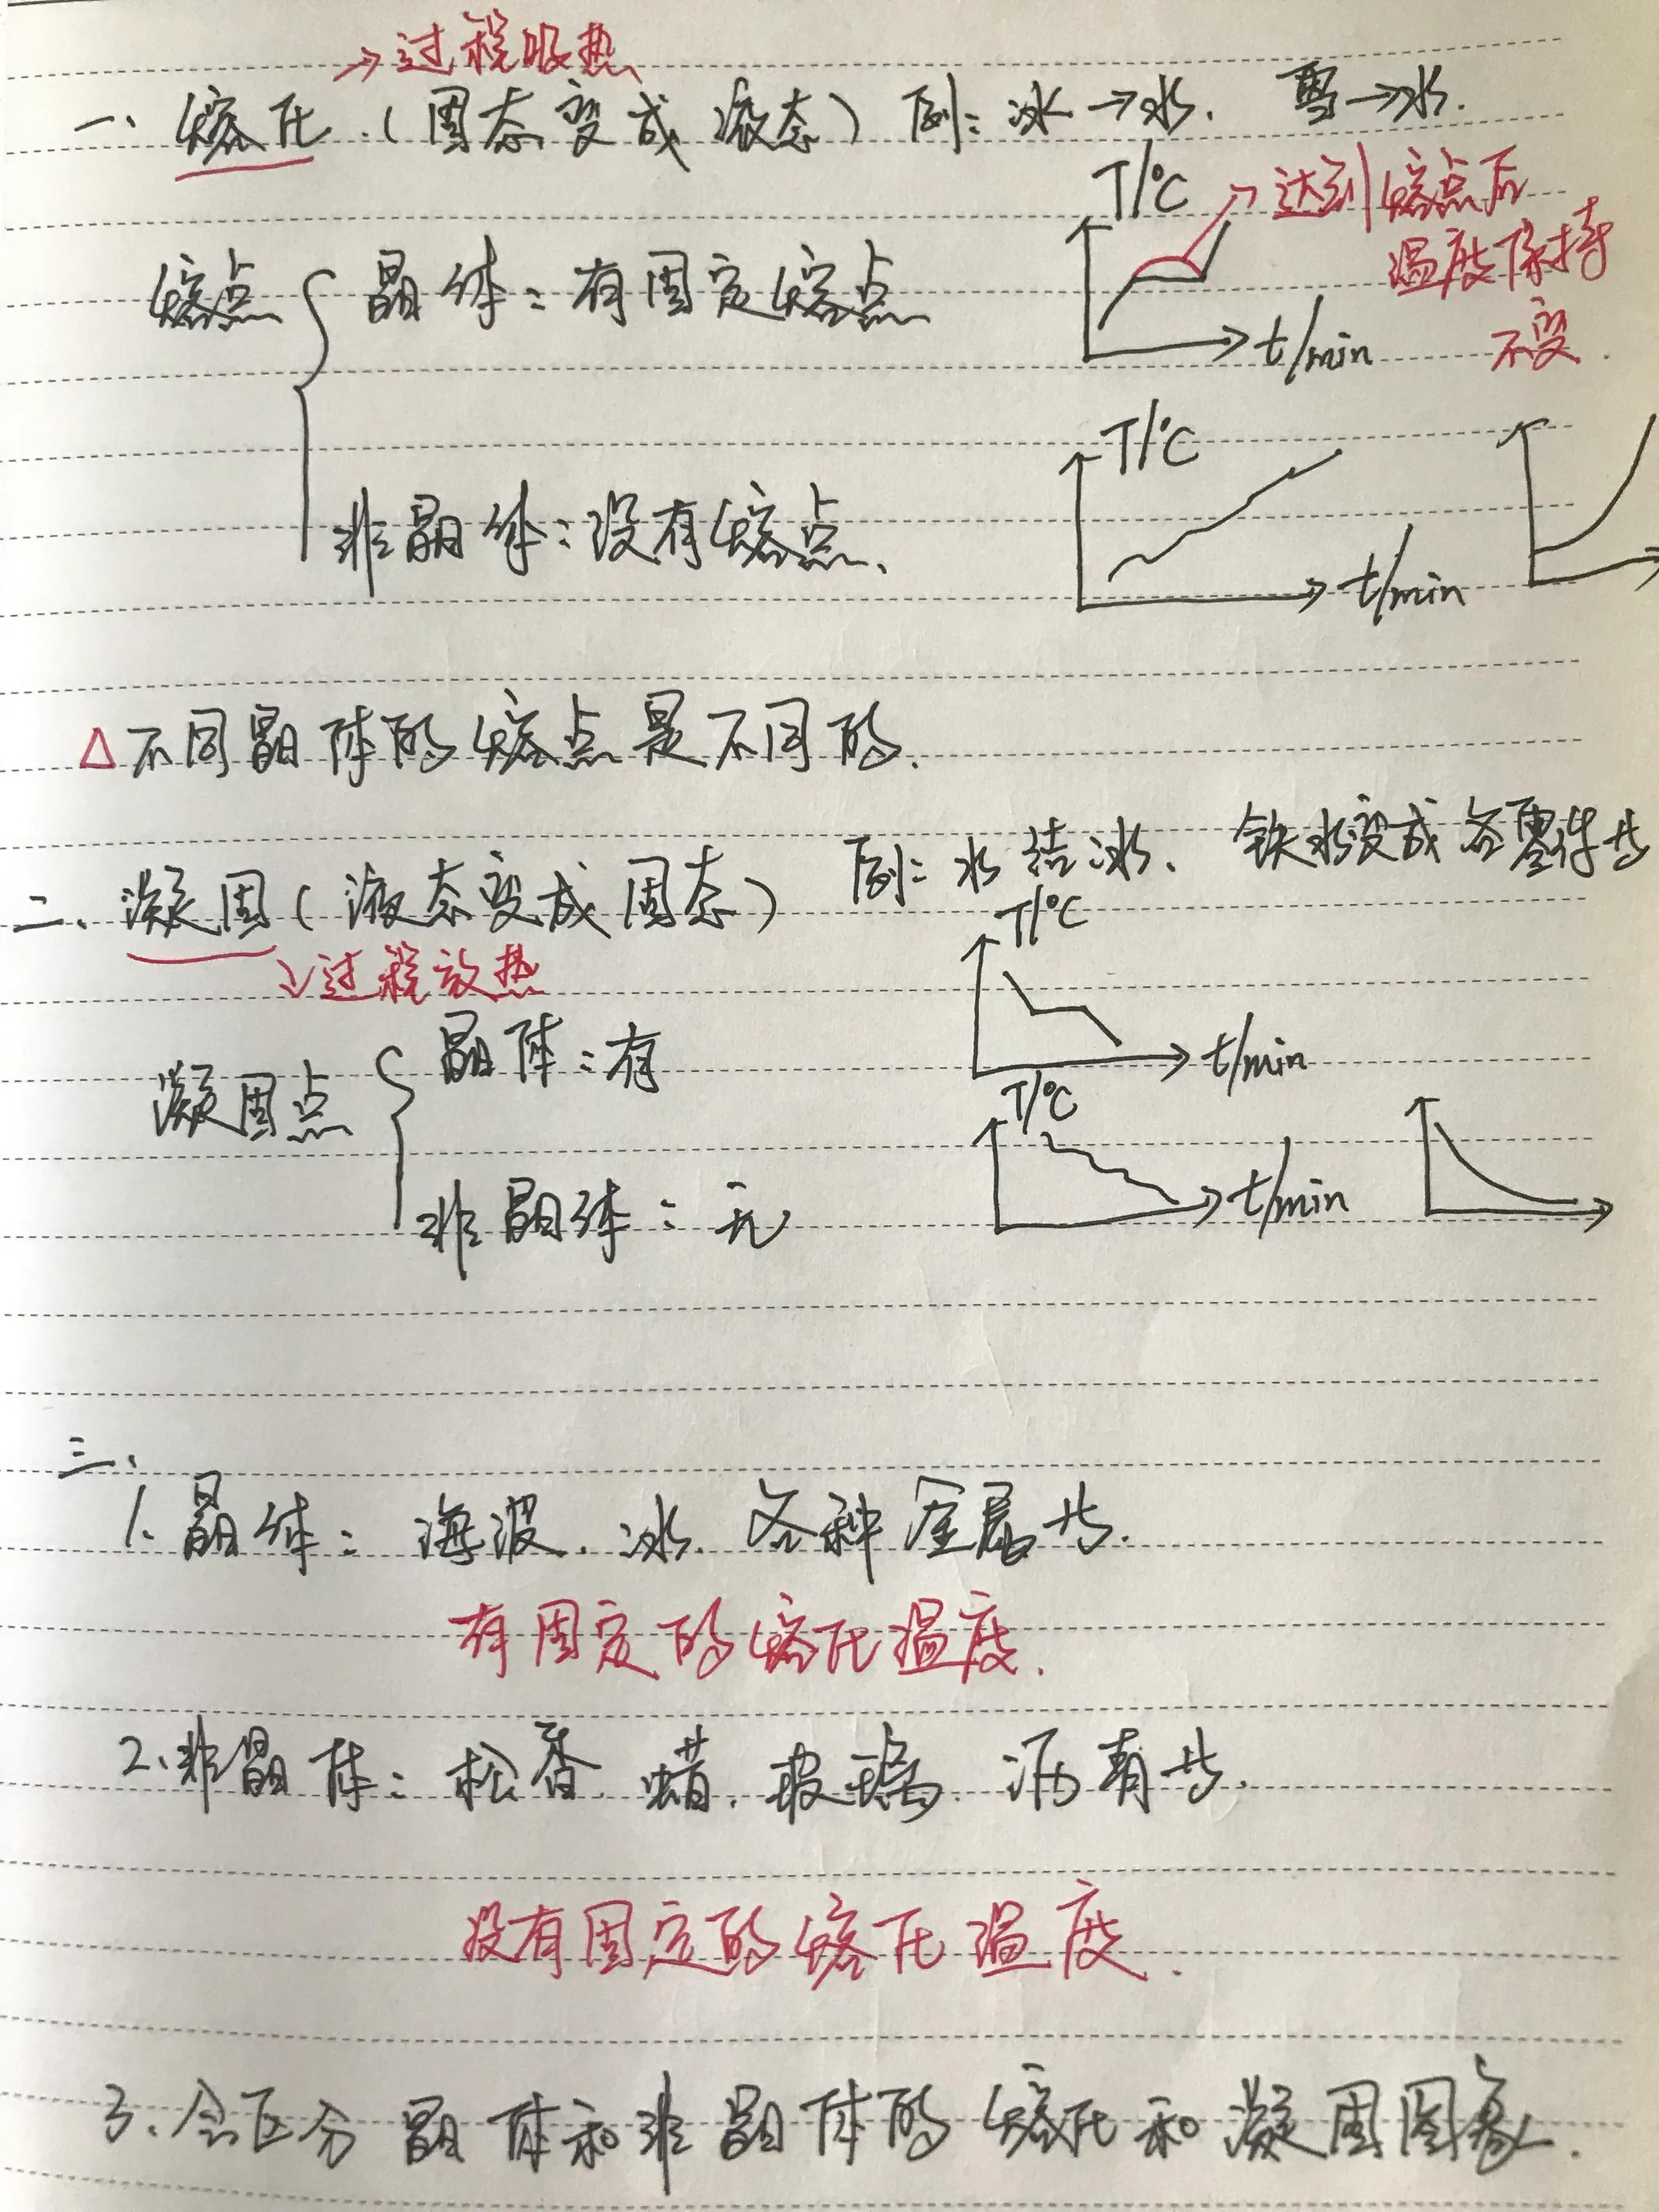 →过程吸热
一、熔化.(固态变成液态) 例:冰→水. 雪→水.
T/℃ →达到熔点后
温度保持
不变.
熔点 晶体:有固定熔点
t/min
T/℃
非晶体:没有熔点、
t/min
△不同晶体的熔点是不同的.
例:水结冰、铁水变成各零件等
二、凝固(液态变成固态)
T/℃
↓过程放热
晶体:有
t/min
凝固点
T/℃
非晶体:无
t/min
三、
1、晶体:海波、冰、各种金属等.
有固定的熔化温度.
2、非晶体:松香、蜡、玻璃、沥青等.
没有固定的熔化温度.
3、会区分晶体和非晶体的熔化和凝固图象.